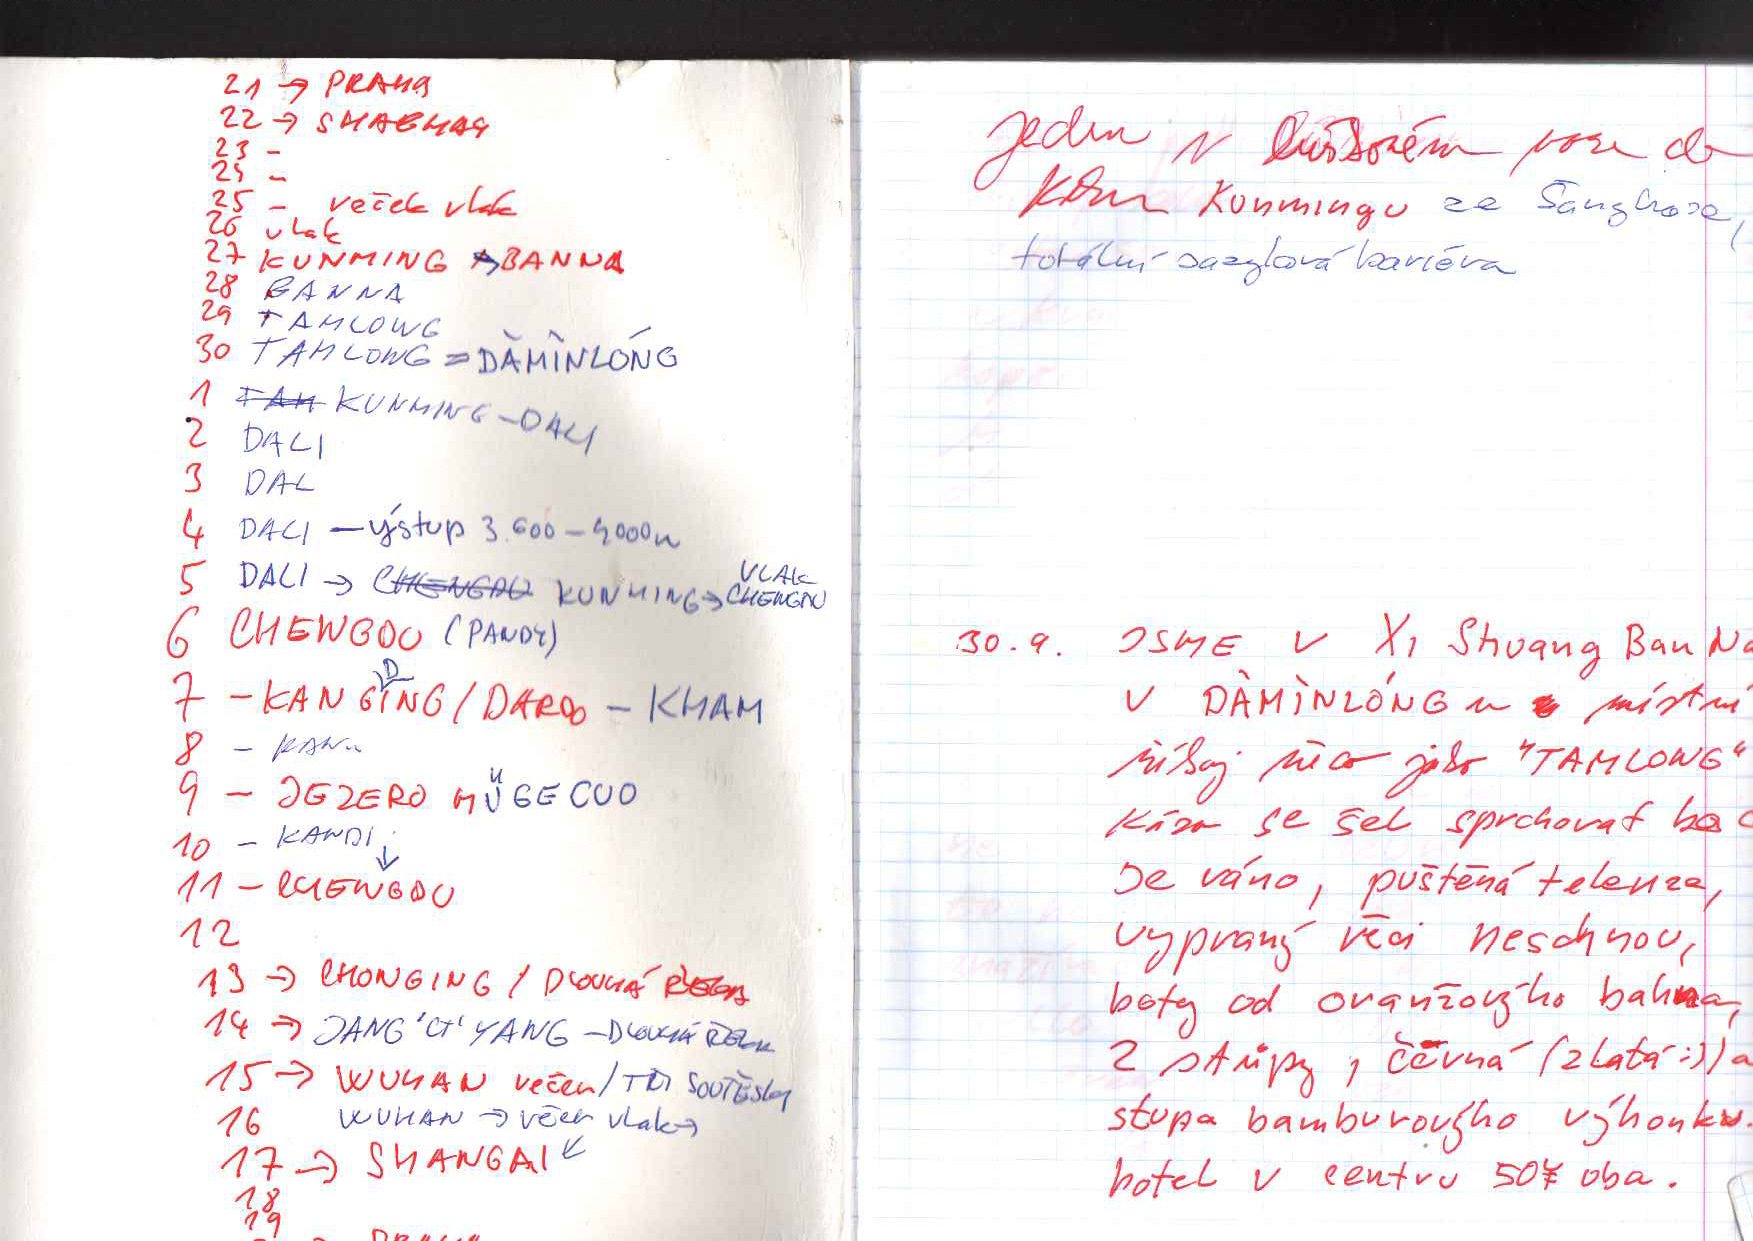 21 → PRAHA
22 → SHAGHAY
23 -
24 -
25 - večer vlak
26 vlak
27 KUNMING → BANNA
28 BANNA
29 TAMLONG
30 TAMLONG = DĂMÌNLÓNG
1 TAM KUNMING - DALI
2 DALI
3 DAL
4 DALI — výstup 3.600 - 4000m
5 DALI → CHENGDU KUNMING → VLAK CHENGDU
6 CHENGDU (PANDY)
7 - KANGDING / DARDO - KHAM
8 - KAN
9 - JEZERO MUGECUO
10 - KANDI
11 - CHENGDU
12
13 → CHONGING / DLOUHÁ ŘEKA
14 → JANG'C'YANG - DLOUHÁ ŘEKA
15 → WUHAN večer / TŘI SOUTĚSKY
16 WUHAN → večer vlak →
17 → SHANGAI
18
19
→ PRAHA
Jedem v lůžkovém voze do
Kunmingu ze Šanghaje,
totální jazyková bariéra
30.9. JSME V Xi Shuang Ban Na
V DÀMÌNLÓNG místní
říkaj něco jako "TAMLONG"
Káza se šel sprchovat
Je ráno, puštěná telenza,
vypraný věci neschnou,
boty od oranžovýho bahna,
2 stůpy, černá (zlatá :)) a
stupa bamburovýho výhonku.
hotel v centru 50¥ oba.